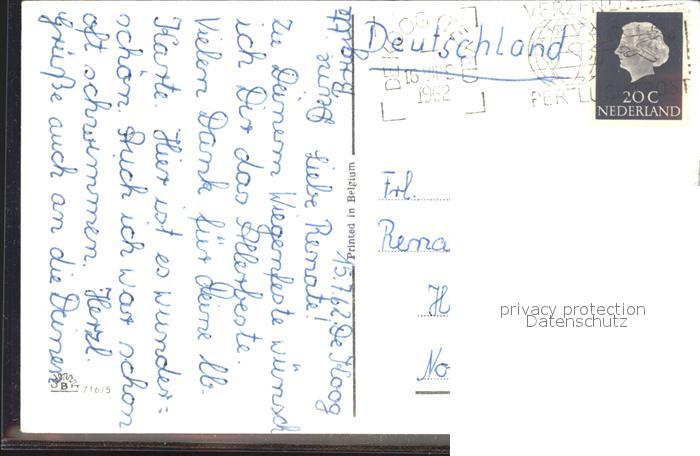 15.7.62. De Koog
Liebe Renate!
Zu Deinem Wiegenfeste wünsch
ich Dir das Allerbeste.
Vielen Dank für deine lb.
Karte. Hier ist es wunder=
schön. Auch ich war schon
oft schwimmen. Herzl.
Grüße auch an die Deinen
Printed in Belgium
716/5
Deutschland
DE KOOG
16
1962
VERZEND
PER LUCHTPOST
20 C
NEDERLAND
Frl.
Rena
H
No
privacy protection
Datenschutz